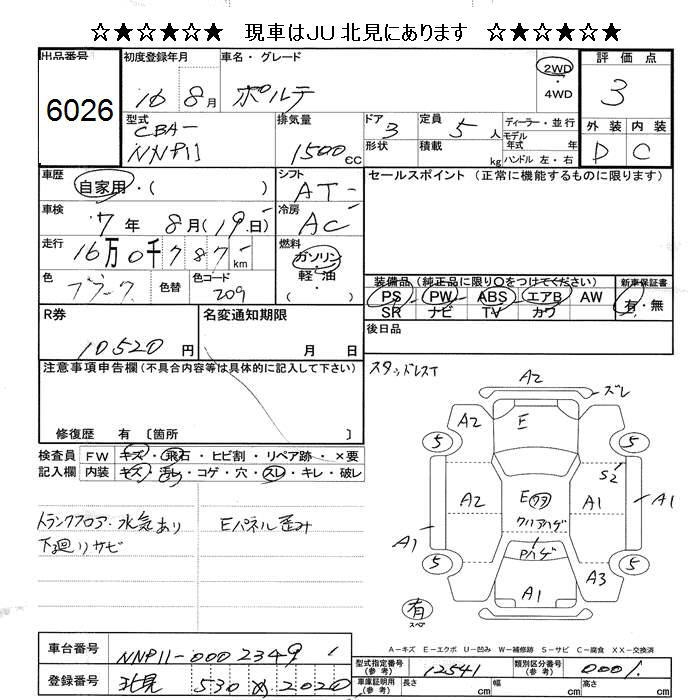 ☆★☆★☆★ 現車はJU北見にあります ☆★☆★☆★
出品番号 初度登録年月 車名・グレード 評価点
6026 16 8月 ポルテ 2WD・4WD 3
型式 排気量 ドア 定員 ディーラー・並行 外装 内装
CBA-NNP11 1500cc 3 5人 モデル年式 年 D C
形状 積載 kg ハンドル 左・右
車歴 シフト セールスポイント(正常に機能するものに限ります)
自家用・( ) AT-
車検 冷房
7年 8月(19日) AC
走行 燃料
16万0千787km ガソリン・軽油・( )
色 色替 色コード 装備品(純正品に限り○をつけてください) 新車保証書
ブラック 209 PS PW ABS エアB AW 有・無
SR ナビ TV カワ
R券 名変通知期限 後日品
10520円 月 日
注意事項申告欄(不具合内容等は具体的に記入して下さい) スタッドレスT
修復歴 有 〔箇所 〕
検査員 FW キズ・飛石・ヒビ割・リペア跡・×要
記入欄 内装 キズ・汚れ・コゲ・穴・スレ・キレ・破レ
トランクフロアー水気あり Eパネル歪み
下廻りサビ
A2 ズレ
A2 E
5 5
S2
A2 E A1 A1
クリアハゲ
A1 Pハゲ
5 A3 5
A1
有
スペア
A－キズ E－エクボ U－凹み W－補修跡 S－サビ C－腐食 XX－交換済
車台番号 NNP11-0002349 型式指定番号(参考) 12541 類別区分番号(参考) 0001
登録番号 北見 530 め 2020 車庫証明用(参考) 長さ cm 幅 cm 高さ cm